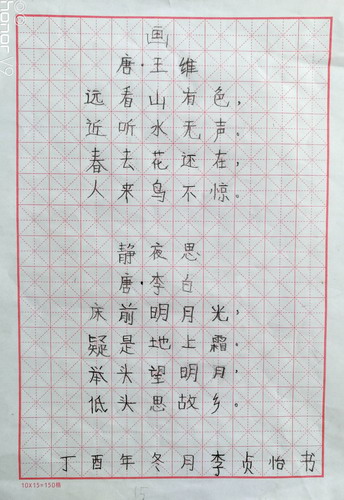 honor V9
画
唐·王维
远看山有色，
近听水无声。
春去花还在，
人来鸟不惊。
静夜思
唐·李白
床前明月光，
疑是地上霜。
举头望明月，
低头思故乡。
丁酉年冬月李贞怡书
10X15=150格